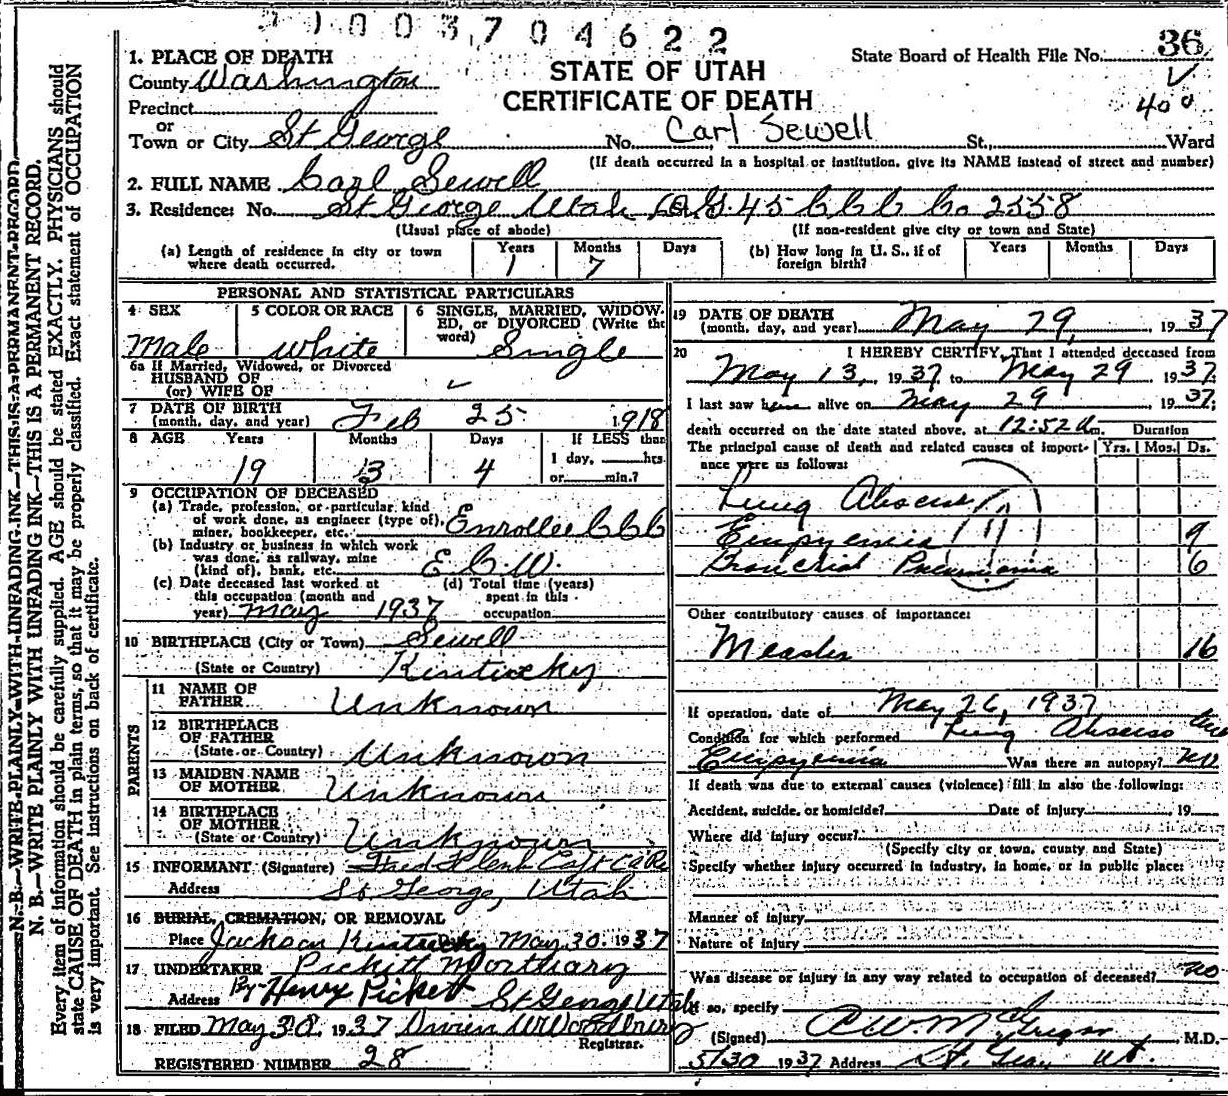 21003704622
State Board of Health File No. 36
STATE OF UTAH
CERTIFICATE OF DEATH
400
1. PLACE OF DEATH
County Washington
Precinct
or
Town or City St George No. Carl Sewell St., Ward
(If death occurred in a hospital or institution, give its NAME instead of street and number)
2. FULL NAME Carl Sewell
3. Residence: No. St George Utah D.G. 45 CCC Co 2558
(Usual place of abode) (If non-resident give city or town and State)
(a) Length of residence in city or town where death occurred. Years 1 Months 7 Days
(b) How long in U. S., if of foreign birth? Years Months Days
PERSONAL AND STATISTICAL PARTICULARS
4 SEX Male
5 COLOR OR RACE White
6 SINGLE, MARRIED, WIDOWED, or DIVORCED (Write the word) Single
6a If Married, Widowed, or Divorced
HUSBAND OF
(or) WIFE OF
7 DATE OF BIRTH
(month, day, and year) Feb 25 1918
8 AGE Years 19 Months 3 Days 4 If LESS than
1 day, hrs.
or min.?
9 OCCUPATION OF DECEASED
(a) Trade, profession, or particular kind
of work done, as engineer (type of),
miner, bookkeeper, etc. Enrollee CCC
(b) Industry or business in which work
was done, as railway, mine
(kind of), bank, etc. E.C.W.
(c) Date deceased last worked at
this occupation (month and
year) May 1937
(d) Total time (years)
spent in this
occupation
10 BIRTHPLACE (City or Town) Sewell
(State or Country) Kintucky
PARENTS
11 NAME OF
FATHER Unknown
12 BIRTHPLACE
OF FATHER
(State or Country) Unknown
13 MAIDEN NAME
OF MOTHER Unknown
14 BIRTHPLACE
OF MOTHER
(State or Country) Unknown
15 INFORMANT (Signature) Capt Ca Re
Address St George, Utah
16 BURIAL, CREMATION, OR REMOVAL
Place Jackson Kintucky May 30, 1937
17 UNDERTAKER Pickett Mortuary
Address By Henry Pickett St George Utah
18 FILED May 30, 1937 Woodbury
Registrar.
REGISTERED NUMBER 28
19 DATE OF DEATH
(month, day, and year) May 29, 1937
20 I HEREBY CERTIFY, That I attended deceased from
May 13, 1937 to May 29 1937
I last saw him alive on May 29 1937;
death occurred on the date stated above, at 12:52 a m. Duration
The principal cause of death and related causes of importance were as follows: Yrs. Mos. Ds.
Lung Abscess
Empyemia 9
Bronchial Pneumonia 6
Other contributory causes of importance:
Measles 16
If operation, date of May 26, 1937
Condition for which performed Lung Abscess and
Empyemia Was there an autopsy? no
If death was due to external causes (violence) fill in also the following:
Accident, suicide, or homicide? Date of injury , 19
Where did injury occur?
(Specify city or town, county and State)
Specify whether injury occurred in industry, in home, or in public place:
Manner of injury
Nature of injury
Was disease or injury in any way related to occupation of deceased? no
If so, specify
(Signed) McGregor, M.D.
5/30 1937 Address St. Geor Ut.
N. B.—WRITE PLAINLY WITH UNFADING INK—THIS IS A PERMANENT RECORD.
N. B.—WRITE PLAINLY WITH UNFADING INK—THIS IS A PERMANENT RECORD.
Every item of information should be carefully supplied. AGE should be stated EXACTLY. PHYSICIANS should
state CAUSE OF DEATH in plain terms, so that it may be properly classified. Exact statement of OCCUPATION
is very important. See instructions on back of certificate.